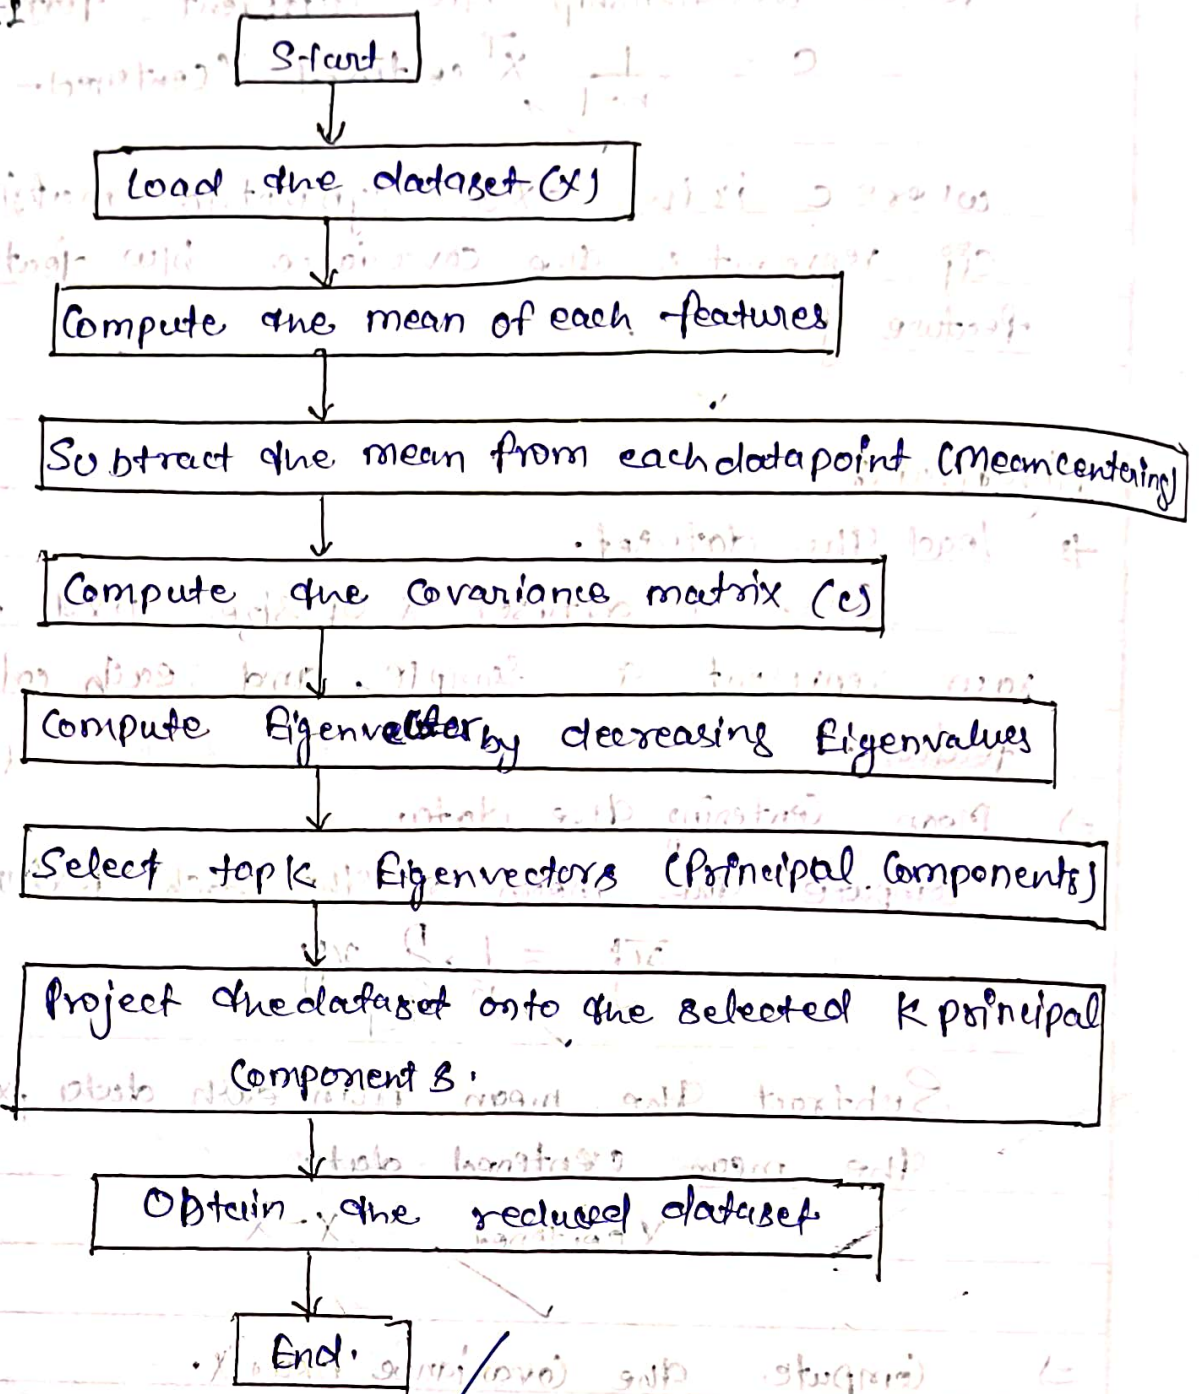 Start.
Load the dataset (X)
Compute the mean of each features
Subtract the mean from each datapoint (Mean centering)
Compute the covariance matrix (c)
Compute Eigenvector by decreasing Eigenvalues
Select top k Eigenvectors (Principal Components)
Project the dataset onto the selected K principal
Components.
Obtain the reduced dataset
End.